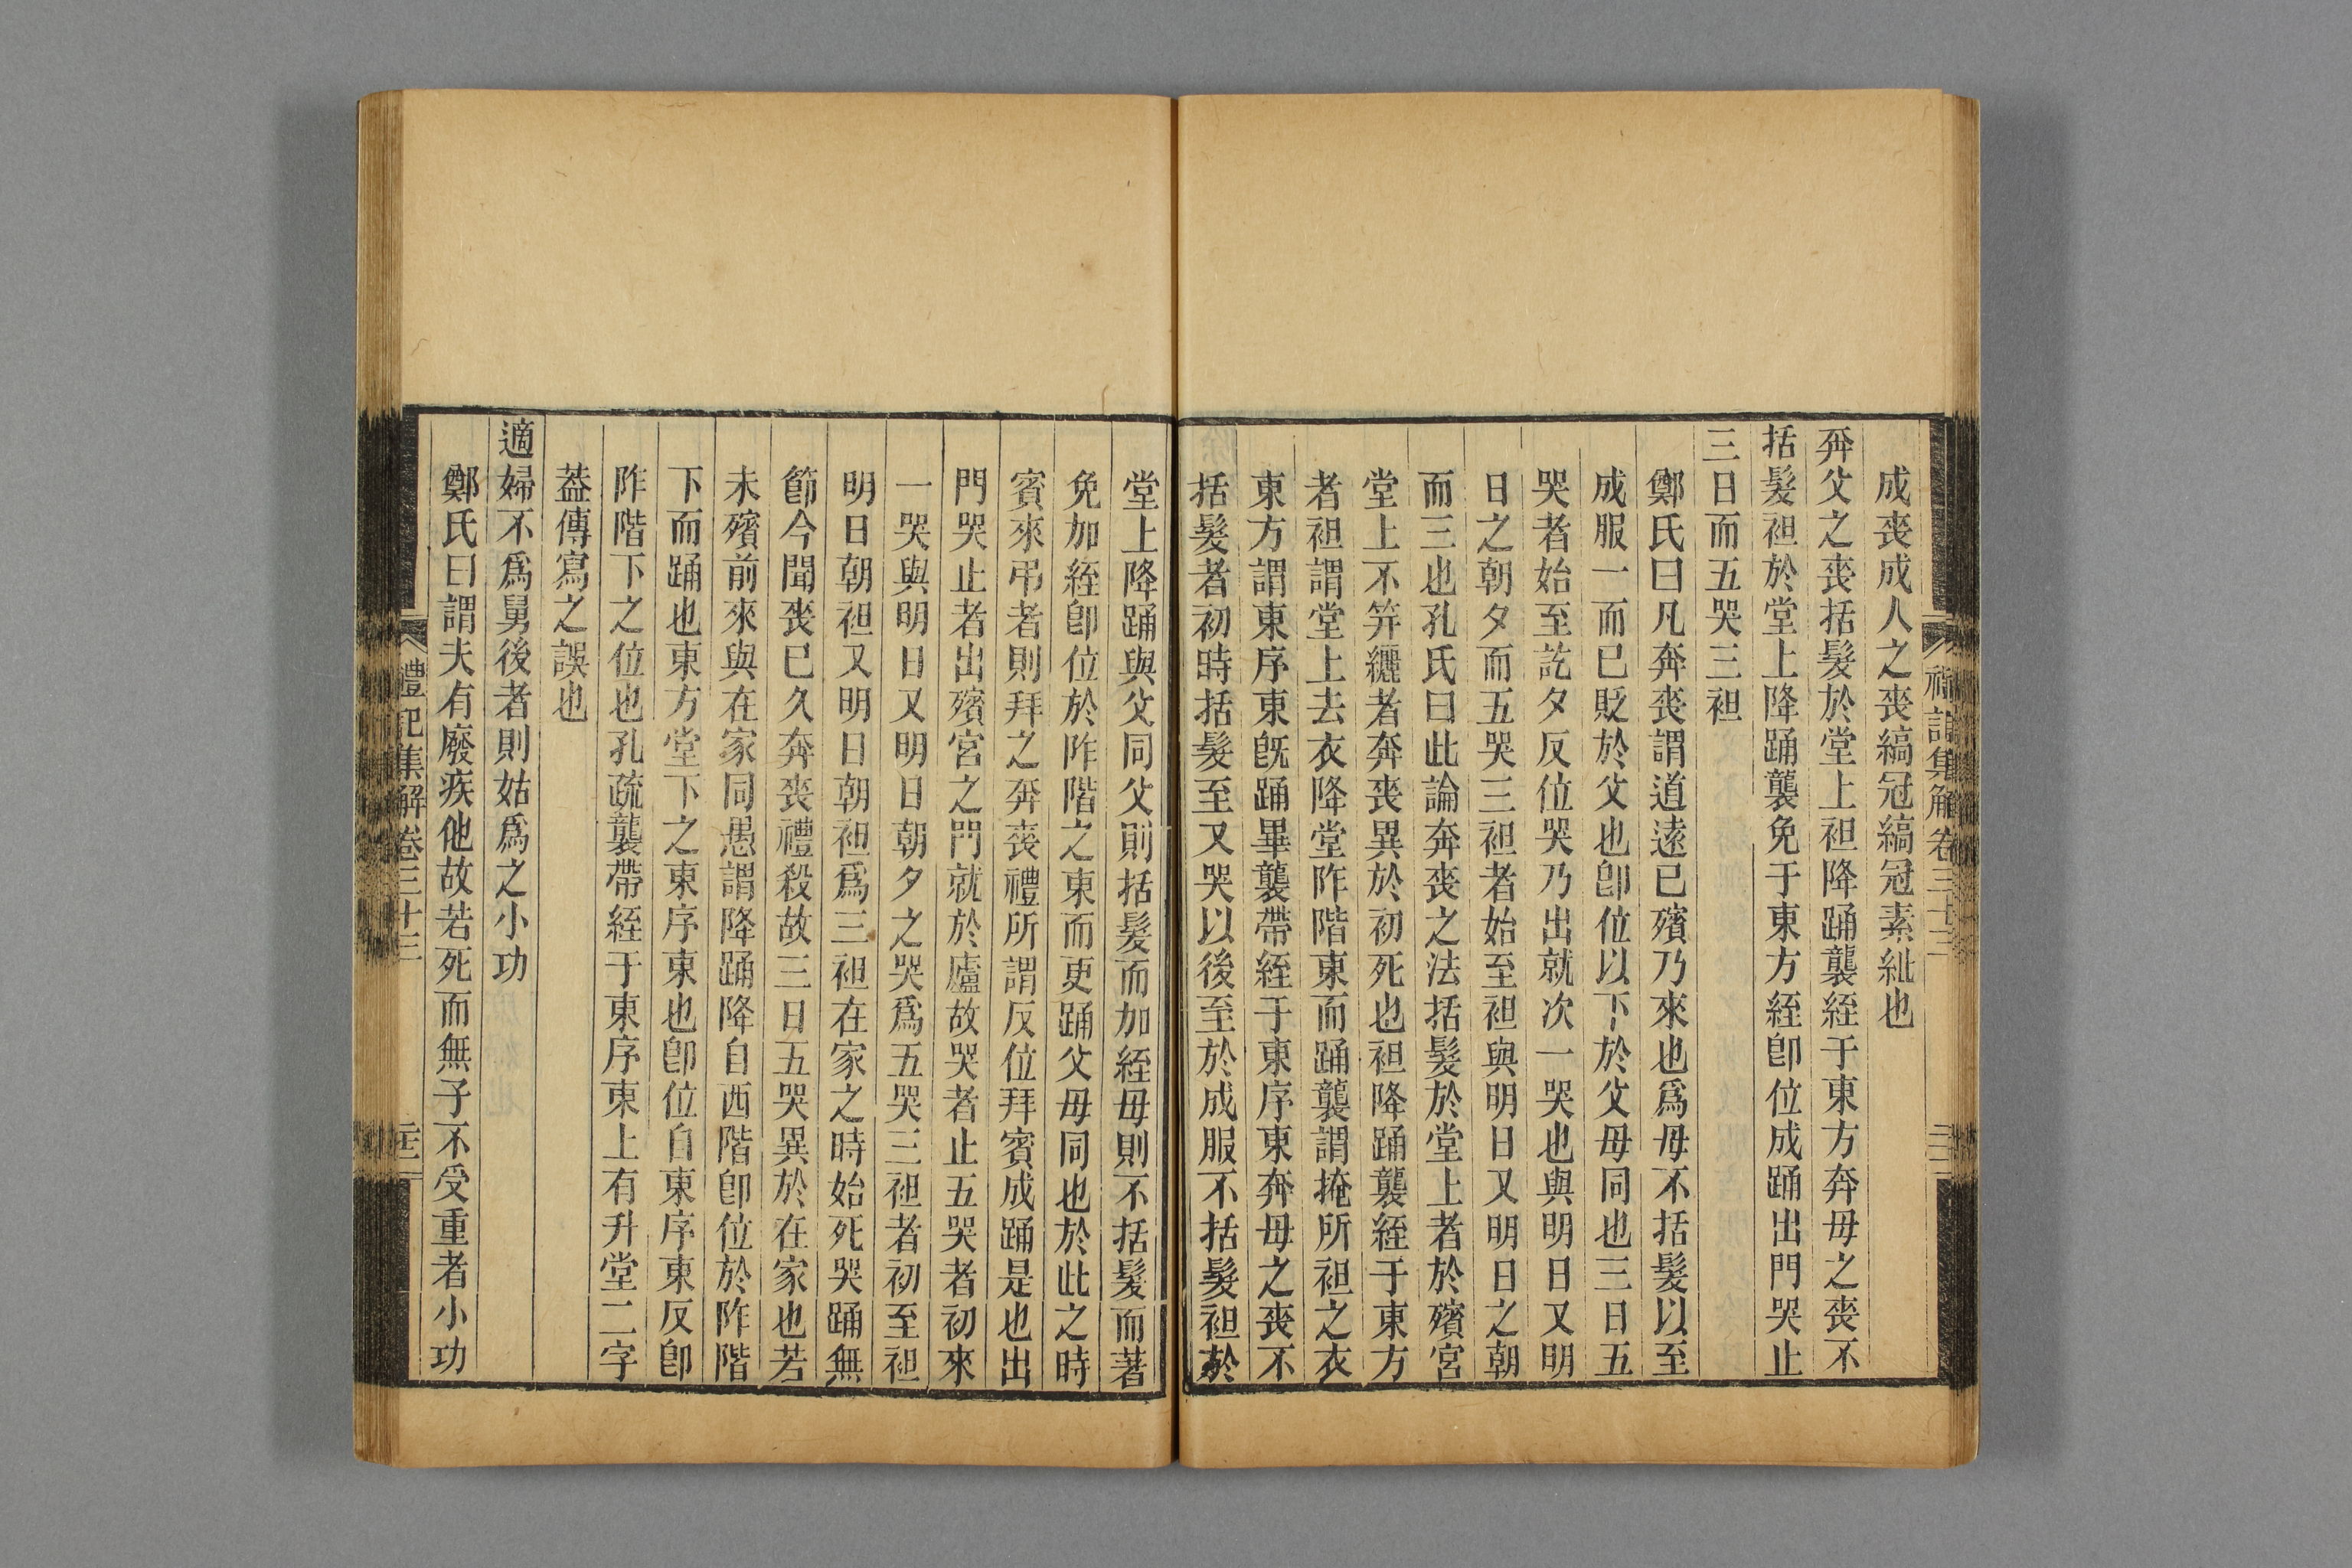 禮記集解卷三十三
成喪成人之喪縞冠縞冠素紕也
奔父之喪括髮於堂上袒降踊襲絰于東方奔母之喪不
括髮袒於堂上降踊襲免于東方絰卽位成踊出門哭止
三日而五哭三袒
鄭氏曰凡奔喪謂道遠已殯乃來也爲母不括髮以至
成服一而已貶於父也卽位以下於父母同也三日五
哭者始至訖夕反位哭乃出就次一哭也與明日又明
日之朝夕而五哭三袒者始至袒與明日又明日之朝
而三也孔氏曰此論奔喪之法括髮於堂上者於殯宮
堂上不笄纚者奔喪異於初死也袒降踊襲絰于東方
者袒謂堂上去衣降堂阼階東而踊襲謂掩所袒之衣
東方謂東序東旣踊畢襲帶絰于東序東奔母之喪不
括髮者初時括髮至又哭以後至於成服不括髮袒於
堂上降踊與父同父則括髮而加絰母則不括髮而著
免加絰卽位於阼階之東而更踊父母同也於此之時
賓來弔者則拜之奔喪禮所謂反位拜賓成踊是也出
門哭止者出殯宮之門就於廬故哭者止五哭者初來
一哭與明日又明日朝夕之哭爲五哭三袒者初至袒
明日朝袒又明日朝袒爲三袒在家之時始死哭踊無
節今聞喪已久奔喪禮殺故三日五哭異於在家也若
未殯前來與在家同愚謂降踊降自西階卽位於阼階
下而踊也東方堂下之東序東也卽位自東序東反卽
阼階下之位也孔疏襲帶絰于東序東上有升堂二字
葢傳寫之誤也
適婦不爲舅後者則姑爲之小功
鄭氏曰謂夫有廢疾他故若死而無子不受重者小功
禮記集解卷三十三